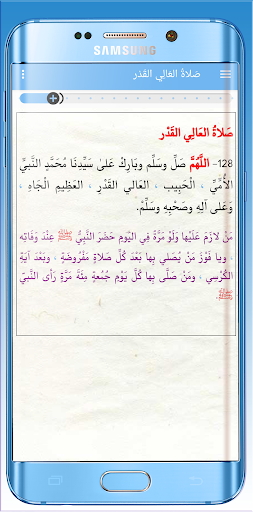 SAMSUNG
صَلاةُ العَالِي القَدْر
صَلاةُ العَالِي القَدْر
128– اللَّهُمَّ صَلِّ وسَلِّم وبَارِكْ عَلىٰ سَيِّدِنَا مُحَمَّدٍ النَّبِيِّ
الأُمِّيِّ ، الْحَبِيب ، العَالي القَدْرِ ، العَظِيمِ الْجَاهِ ،
وَعَلى آلِهِ وَصَحْبِهِ وسَلِّمْ.
مَنْ لازَمَ عَلَيْها وَلَوْ مَرَّةً فِي اليَوْمِ حَضَرَ النَّبِيُّ ﷺ عِنْدَ وَفَاتِهِ
، ويا فَوْزَ مَنْ يُصَلِّي بِها بَعْدَ كُلِّ صَلاةٍ مَفْرُوضَةٍ ، وبَعْدَ آيَةِ
الكُرْسِي ، ومَنْ صَلَّى بِها كُلَّ يَوْمِ جُمُعَةٍ مِئَةَ مَرَّةٍ رَأى النَّبِيّ
ﷺ.